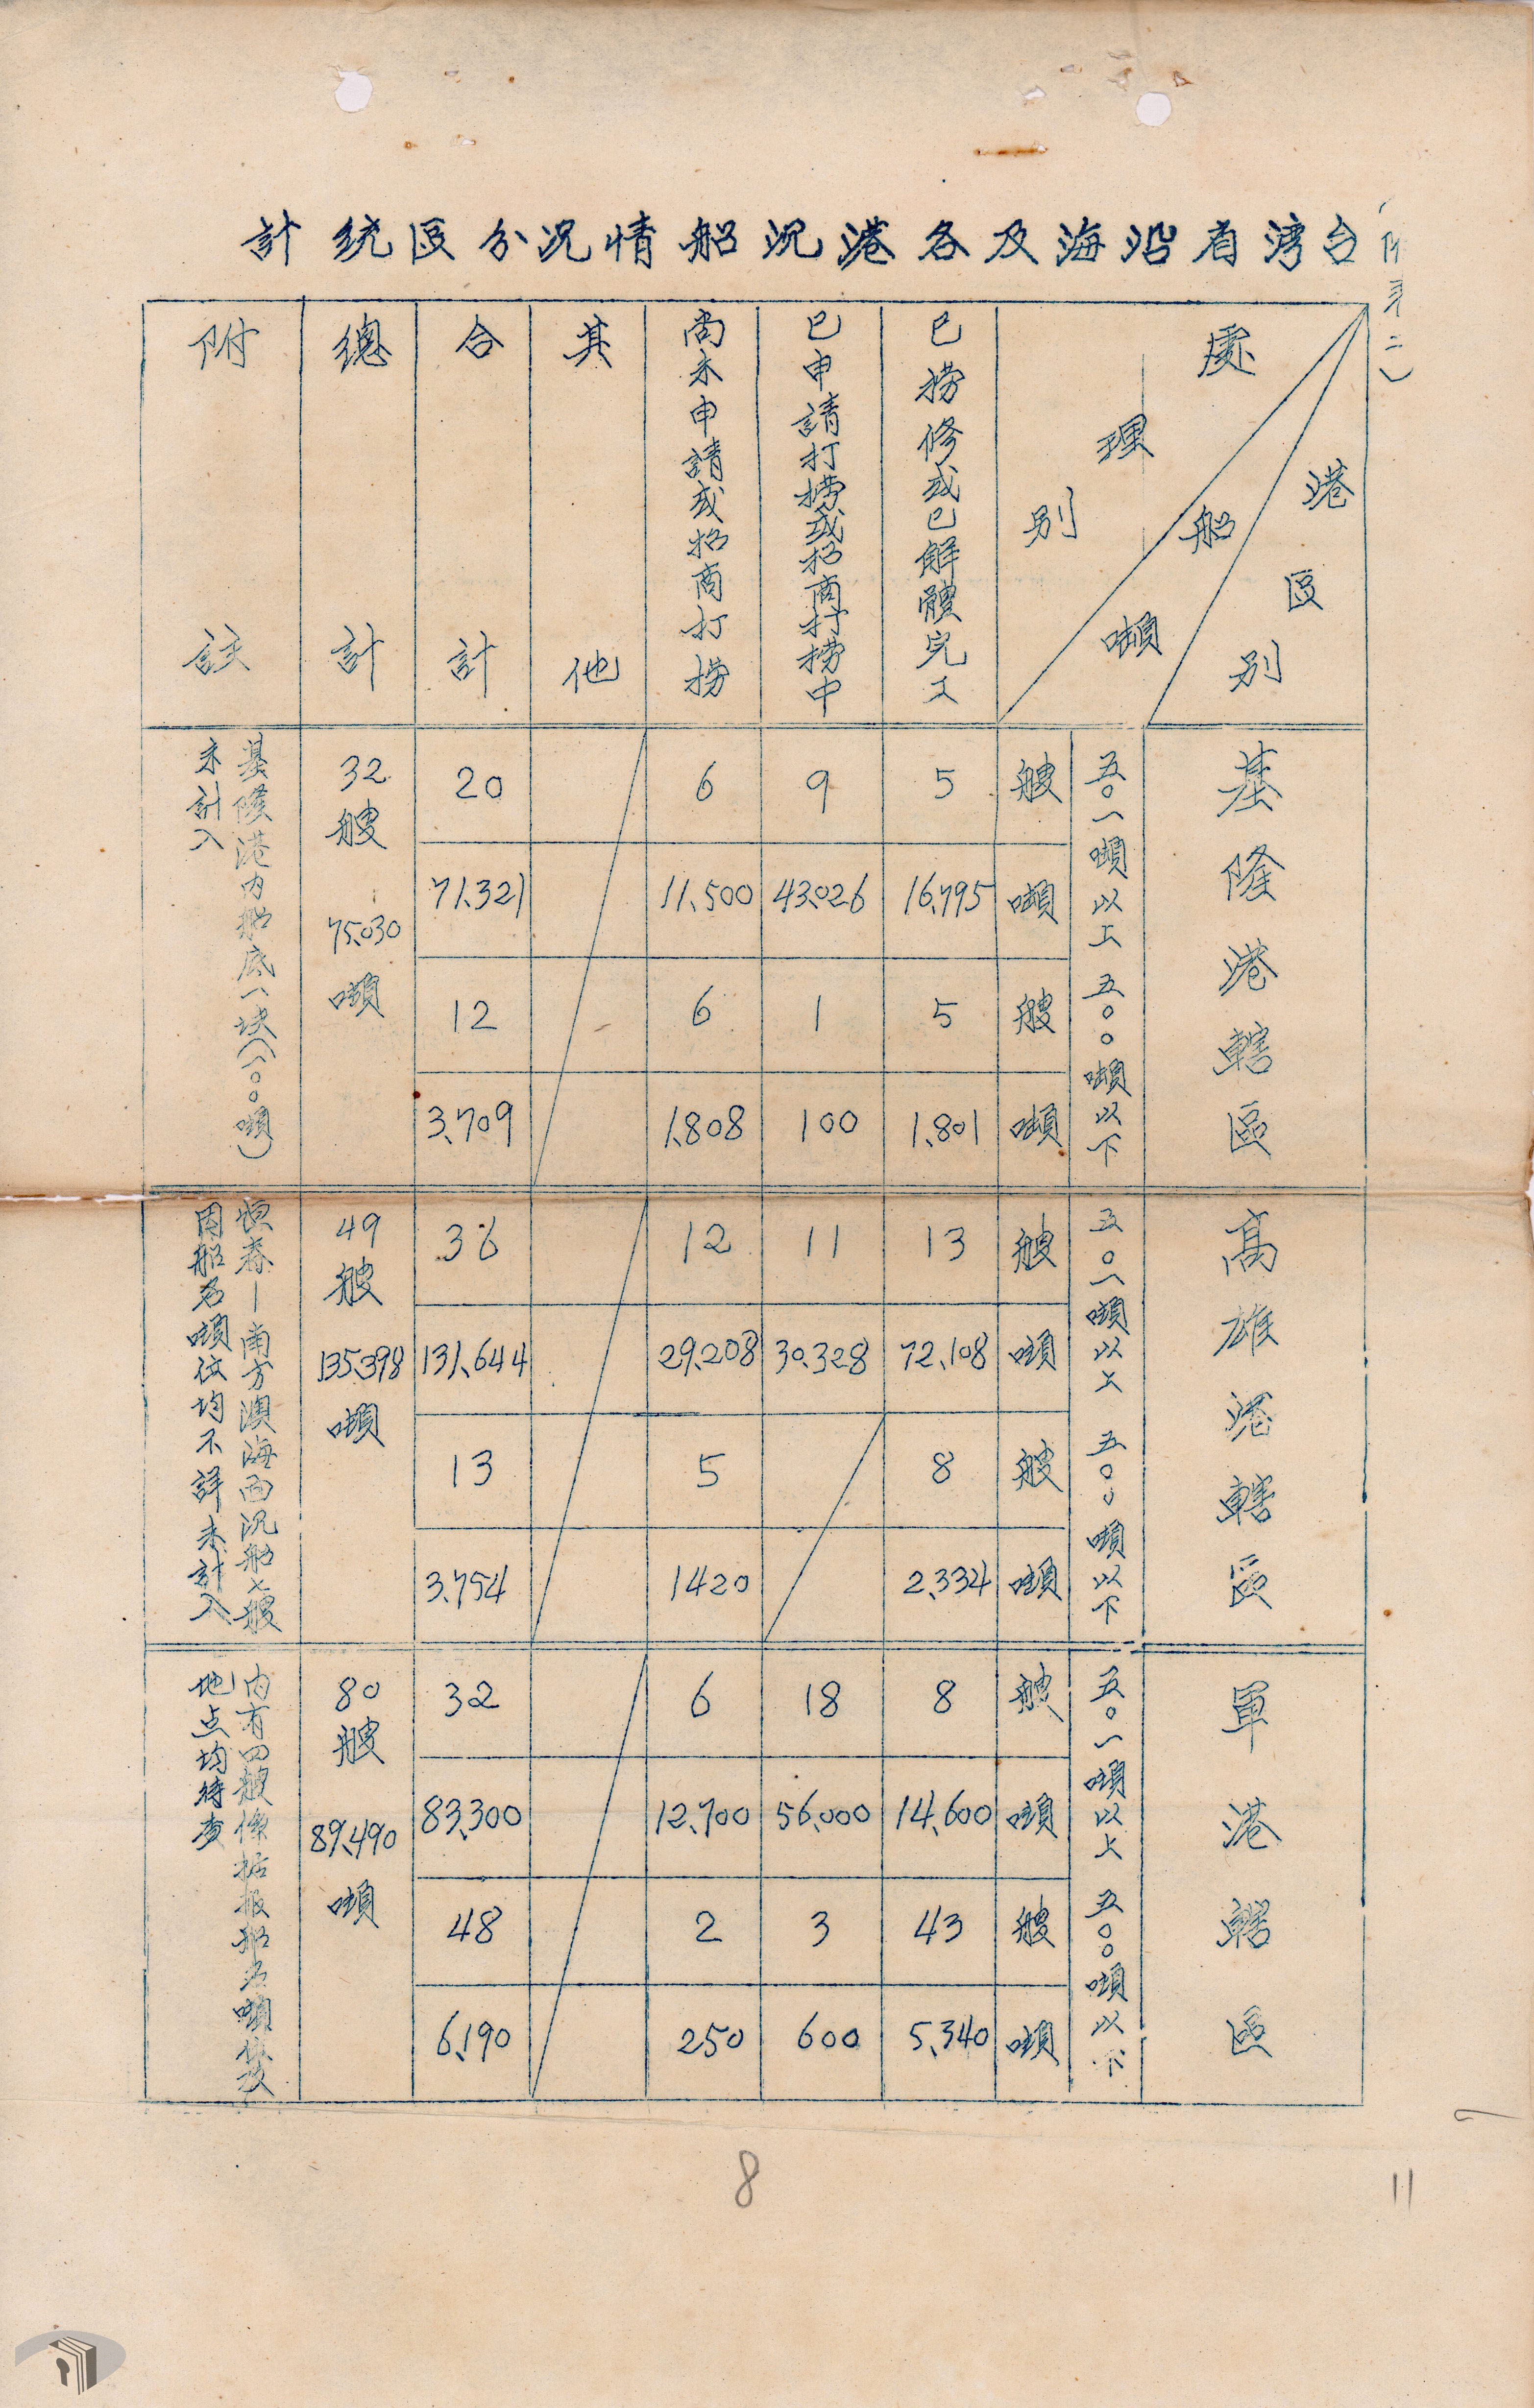 (附表二)
台湾省沿海及各港沉船情況分區統計
港區別
船噸
處理別
已撈修或已解體完工
已申請打撈或招商打撈中
尚未申請或招商打撈
其他
合計
總計
附註
基隆港轄區
五〇一噸以上
艘 5 9 6 20
噸 16,795 43,026 11,500 71,321
五〇〇噸以下
艘 5 1 6 12
噸 1,801 100 1,808 3,709
32艘
75,030噸
基隆港內船底一块(一〇〇噸)
未計入
高雄港轄區
五〇一噸以上
艘 13 11 12 36
噸 72,108 30,328 29,208 131,644
五〇〇噸以下
艘 8 5 13
噸 2,334 1420 3,754
49艘
135,398噸
恒春—南方澳海面沉船七艘
因船名噸位均不詳未計入
軍港轄區
五〇一噸以上
艘 8 18 6 32
噸 14,600 56,000 12,700 83,300
五〇〇噸以下
艘 43 3 2 48
噸 5,340 600 250 6,190
80艘
89,490噸
內有四艘係据报船名噸位及
地点均待查
8
11